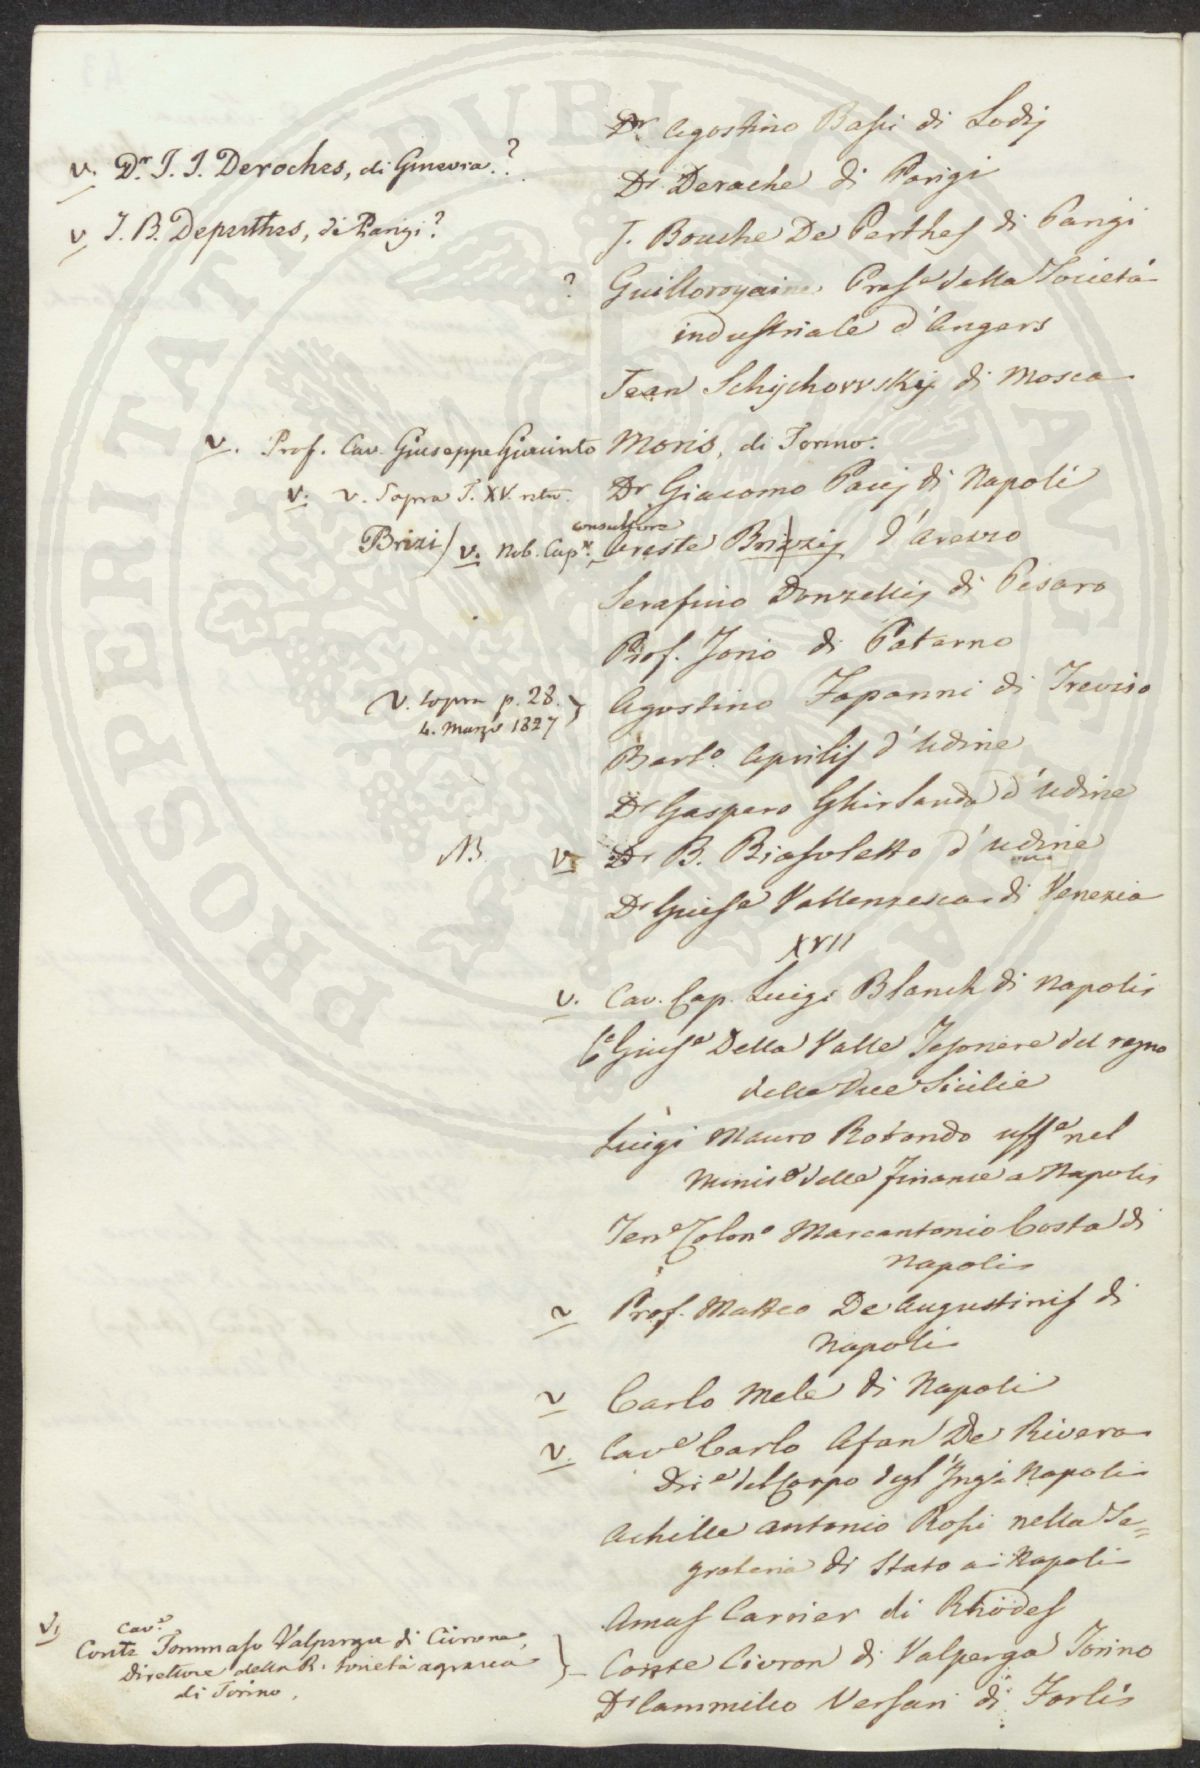 Dr. Agostino Bassi di Lodi
v. Dr. J. J. Deroches, di Ginevra??
Dr. Derache di Parigi
v. J. B. Deperthes, di Parigi?
J. Bouche De Perthes di Parigi
? Presᵉ della Società
industriale d'Angers
Jean Schychowskij di Mosca
v. Prof. Cav. Giuseppe Giacinto Moris, di Torino.
v. v. Sopra T. XV.
Dr. Giacomo Pacij di Napoli
Brizi) v. Nob. Capⁿ. consultore Oreste Brizzij d'Arezzo
Serafino Donzellij di Pesaro
Prof. Jorio di Paterno
v. sopra p. 28.
4. Marzo 1827
Agostino Fapanni di Treviso
Bartᵒ Aprilis d'Udine
Dr Gaspero Ghirlanda d'Udine
NB. v. Dr B. Biasoletto d'Udine
Dr Giusᵉ Vallenzesca di Venezia
XVII
v. Cav. Cap. Luigi Blanch di Napoli
Cᵉ Giusᵉ Della Valle Tesoriere del regno
delle due Sicilie
Luigi Mauro Rotondo uffᵉ nel
Minisᵒ delle finanze a Napoli
Tenᵉ Colonᵒ Marcantonio Costa di
Napoli
v Prof. Matteo De Augustinis di
Napoli
v Carlo Mele di Napoli
v. Cavᵉ Carlo Afan De Rivera
Driᵉ del Corpo degl'Ingⁱ Napoli
Achille Antonio Rossi nella Se=
greteria di Stato a Napoli
Amas Carrier di Rhodes
v. Cavᵉ
Conte Tommaso Valperga di Civrone,
Direttore della R. Società agraria
di Torino,
Conte Civron di Valperga Torino
Dr Cammillo Versari di Forlì